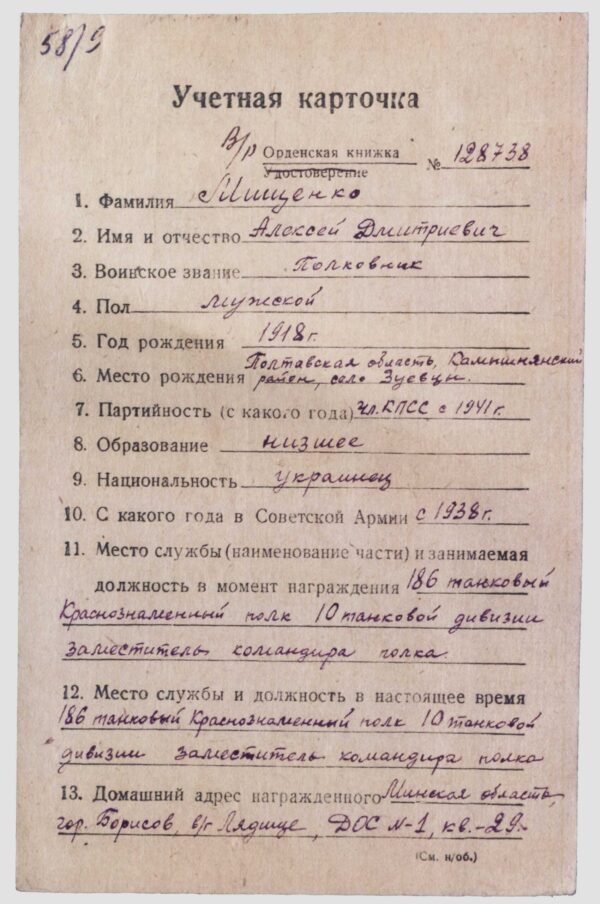 58/9
Учетная карточка
В/р Орденская книжка № 128738
Удостоверение
1. Фамилия Мищенко
2. Имя и отчество Алексей Дмитриевич
3. Воинское звание Полковник
4. Пол мужской
5. Год рождения 1918г.
Полтавская область, Камышнянский
6. Место рождения район, село Зуевцы.
7. Партийность (с какого года) чл. КПСС с 1941г.
8. Образование низшее
9. Национальность украинец
10. С какого года в Советской Армии с 1938г.
11. Место службы (наименование части) и занимаемая
должность в момент награждения 186 танковый
Краснознаменный полк 10 танковой дивизии
заместитель командира полка.
12. Место службы и должность в настоящее время
186 танковый Краснознаменный полк 10 танковой
дивизии заместитель командира полка
13. Домашний адрес награжденного Минская область,
гор. Борисов, в/г Лядище, ДОС N-1, кв.-29-
(См. н/об.)